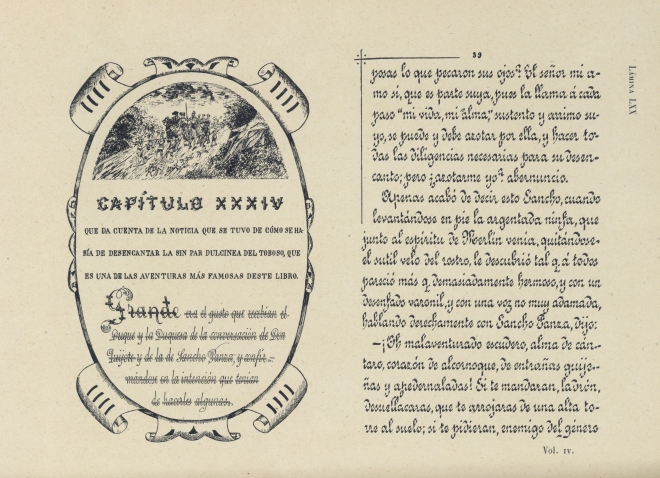 CAPÍTULO XXXIV
QUE DA CUENTA DE LA NOTICIA QUE SE TUVO DE CÓMO SE HA-
BÍA DE DESENCANTAR LA SIN PAR DULCINEA DEL TOBOSO, QUE
ES UNA DE LAS AVENTURAS MÁS FAMOSAS DESTE LIBRO.
Grande era el gusto que recibian el
Duque y la Duquesa de la conversación de Don
Quijote y de la de Sancho Panza; y confir-
mándose en la intención que tenian
de hacerles algunas
39
posas lo que pecaron sus ojos? El señor mi a-
mo sí, que es parte suya, pues la llama á cada
paso "mi vida, mi alma," sustento y arrimo su-
yo, se puede y debe azotar por ella, y hacer to-
das las diligencias necesarias para su desen-
canto; pero ¿azotarme yo? abernuncio.
Apenas acabó de decir esto Sancho, cuando
levantándose en pie la argentada ninfa, que
junto al espíritu de Merlín venía, quitándose
el sutil velo del rostro, le descubrió tal q. á todos
pareció más q. demasiadamente hermoso, y con un
desenfado varonil, y con una voz no muy adamada,
hablando derechamente con Sancho Panza, dijo:
—¡Oh malaventurado escudero, alma de cán-
taro, corazón de alcornoque, de entrañas guije-
ñas y apedernaladas! Si te mandaran, ladrón,
desuellacaras, que te arrojaras de una alta to-
rre al suelo; si te pidieran, enemigo del género
LÁMINA LXX
Vol. IV.